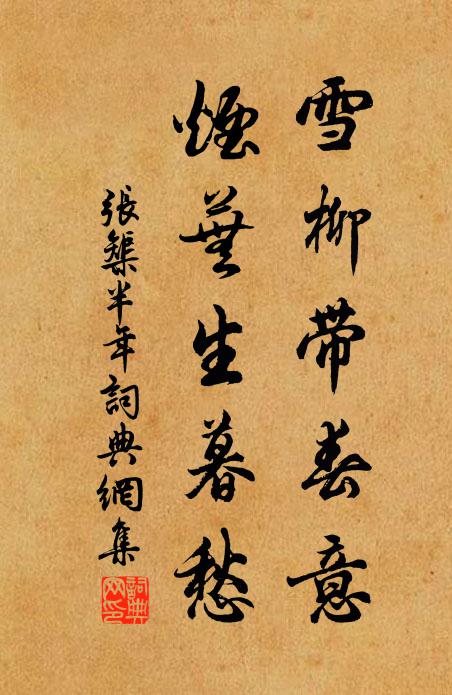 雪柳带春意
煙蕪生暮愁
張榘半年詞典網集
詞典網印